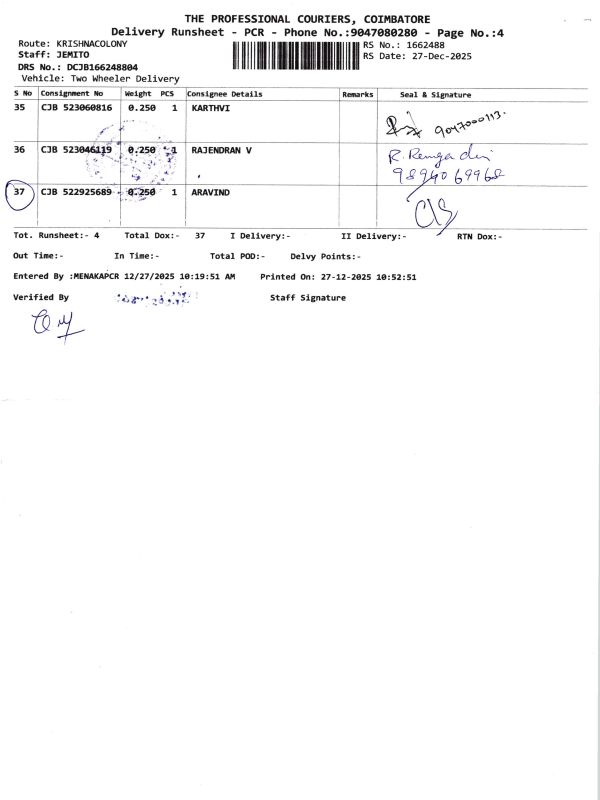 THE PROFESSIONAL COURIERS, COIMBATORE
Delivery Runsheet - PCR - Phone No.:9047080280 - Page No.:4
Route: KRISHNACOLONY RS No.: 1662488
Staff: JEMITO RS Date: 27-Dec-2025
DRS No.: DCJB166248804
Vehicle: Two Wheeler Delivery
S No Consignment No Weight PCS Consignee Details Remarks Seal & Signature
35 CJB 523060816 0.250 1 KARTHVI
9047000113.
36 CJB 523046119 0.250 1 RAJENDRAN V R.
9894069968
37 CJB 522925689 0.250 1 ARAVIND
Tot. Runsheet:- 4 Total Dox:- 37 I Delivery:- II Delivery:- RTN Dox:-
Out Time:- In Time:- Total POD:- Delvy Points:-
Entered By :MENAKAPCR 12/27/2025 10:19:51 AM Printed On: 27-12-2025 10:52:51
Verified By Staff Signature